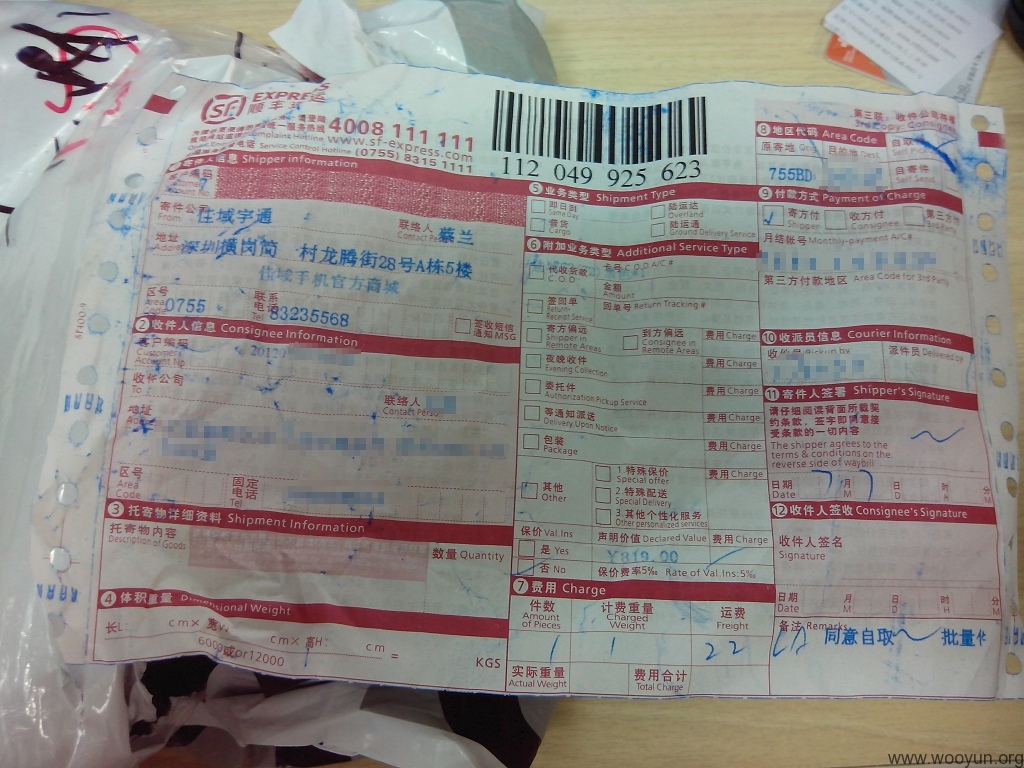 SF EXPRESS
顺丰速运
4008 111 111
www.sf-express.com
Service Control Hotline (0755) 8315 1111
112 049 925 623
寄件人信息 Shipper information
寄件公司 From 佳域宇通
联络人 Contact Person 蔡兰
地址 深圳横岗简 村龙腾街28号A栋5楼
佳域手机官方商城
区号 Area Code 0755
联系电话 Tel 83235568
签收短信通知MSG
② 收件人信息 Consignee Information
客户编码 Customer's Account No 20120
收件公司 To
联络人 Contact Person
地址
区号 Area Code
固定电话 Tel
③ 托寄物详细资料 Shipment Information
托寄物内容 Description of Goods
数量 Quantity
④ 体积重量 Dimensional Weight
长L: cm× 宽W cm× 高H: cm
6000或or12000 = KGS
⑤ 业务类型 Shipment Type
即日到 Same Day
陆运达 Overland
普货 Cargo
陆运通 Ground Delivery Service
⑥ 附加业务类型 Additional Service Type
代收货款 C.O.D
卡号C.O.D A/C#
金额 Amount
签回单 Return Receipt Service
回单号 Return Tracking #
寄方偏远 Shipper in Remote Areas
到方偏远 Consignee in Remote Areas
费用Charge
夜晚收件 Evening Collection
费用Charge
委托件 Authorization Pickup Service
费用Charge
等通知派送 Delivery Upon Notice
费用Charge
包装 Package
费用Charge
其他 Other
1.特殊保价 Special offer
费用Charge
2.特殊配送 Special Delivery
3.其他个性化服务 Other personalized services
保价 Val.Ins
声明价值 Declared Value
费用Charge
是 Yes
¥819.00
否 No
保价费率5‰ Rate of Val Ins:5‰
⑦ 费用 Charge
件数 Amount of Pieces
计费重量 Charged Weight
运费 Freight
1 1 22
实际重量 Actual Weight
费用合计 Total Charge
⑧ 地区代码 Area Code
原寄地
目的地 Dest
自取
755BD
自寄
⑨ 付款方式 Payment of Charge
寄方付 Shipper
收方付 Consignee
第三方付
月结帐号 Monthly-payment A/C#
第三方付款地区 Area Code for 3rd Party
⑩ 收派员信息 Courier Information
收件员 Pickup by
派件员 Delivered by
⑪ 寄件人签署 Shipper's Signature
请仔细阅读背面所载契
约条款，签字即同意接
受条款的一切内容
The shipper agrees to the
terms & conditions on the
reverse side of waybill
日期 Date 7 M 7 D 时 H 分 M
⑫ 收件人签收 Consignee's Signature
收件人签名
Signature
日期 Date 月 M 日 D 时 H 分 M
备注 Remarks
同意自取 批量件
SF400-9
www.wooyun.org